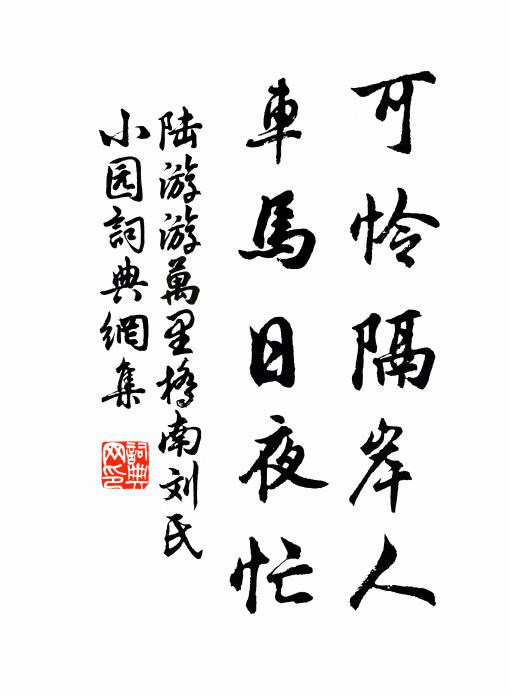 可怜隔岸人
車馬日夜忙
陆游游萬里橋南刘氏
小园詞典網集
詞典
网印